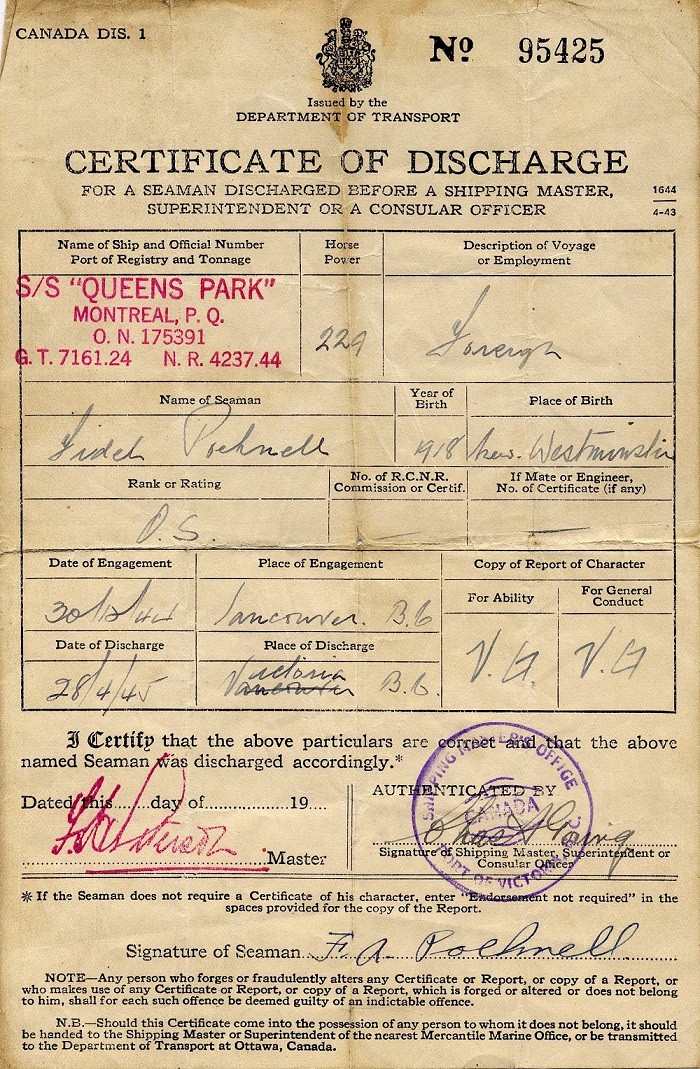 CANADA DIS. 1
Nº 95425
Issued by the
DEPARTMENT OF TRANSPORT
CERTIFICATE OF DISCHARGE
FOR A SEAMAN DISCHARGED BEFORE A SHIPPING MASTER,
SUPERINTENDENT OR A CONSULAR OFFICER
1644
4-43
Name of Ship and Official Number
Port of Registry and Tonnage
Horse
Power
Description of Voyage
or Employment
S/S "QUEENS PARK"
MONTREAL, P. Q.
O. N. 175391
G. T. 7161.24 N. R. 4237.44
229
Foreign
Name of Seaman
Year of
Birth
Place of Birth
Fidel Pocknell
1918
New. Westminster
Rank or Rating
No. of R.C.N.R.
Commission or Certif.
If Mate or Engineer,
No. of Certificate (if any)
O.S.
Date of Engagement
Place of Engagement
Copy of Report of Character
For Ability
For General
Conduct
30/12/44
Vancouver. B.C
V.G.
V.G
Date of Discharge
Place of Discharge
28/4/45
Victoria
Vancouver B.C.
I Certify that the above particulars are correct and that the above
named Seaman was discharged accordingly.*
Dated this......day of...............19....
Master
AUTHENTICATED BY
Signature of Shipping Master, Superintendent or
Consular Officer
SHIPPING MASTER'S OFFICE
CANADA
PORT OF VICTORIA B.C.
* If the Seaman does not require a Certificate of his character, enter "Endorsement not required" in the
spaces provided for the copy of the Report.
Signature of Seaman F. A. Pocknell
NOTE—Any person who forges or fraudulently alters any Certificate or Report, or copy of a Report, or
who makes use of any Certificate or Report, or copy of a Report, which is forged or altered or does not belong
to him, shall for each such offence be deemed guilty of an indictable offence.
N.B.—Should this Certificate come into the possession of any person to whom it does not belong, it should
be handed to the Shipping Master or Superintendent of the nearest Mercantile Marine Office, or be transmitted
to the Department of Transport at Ottawa, Canada.